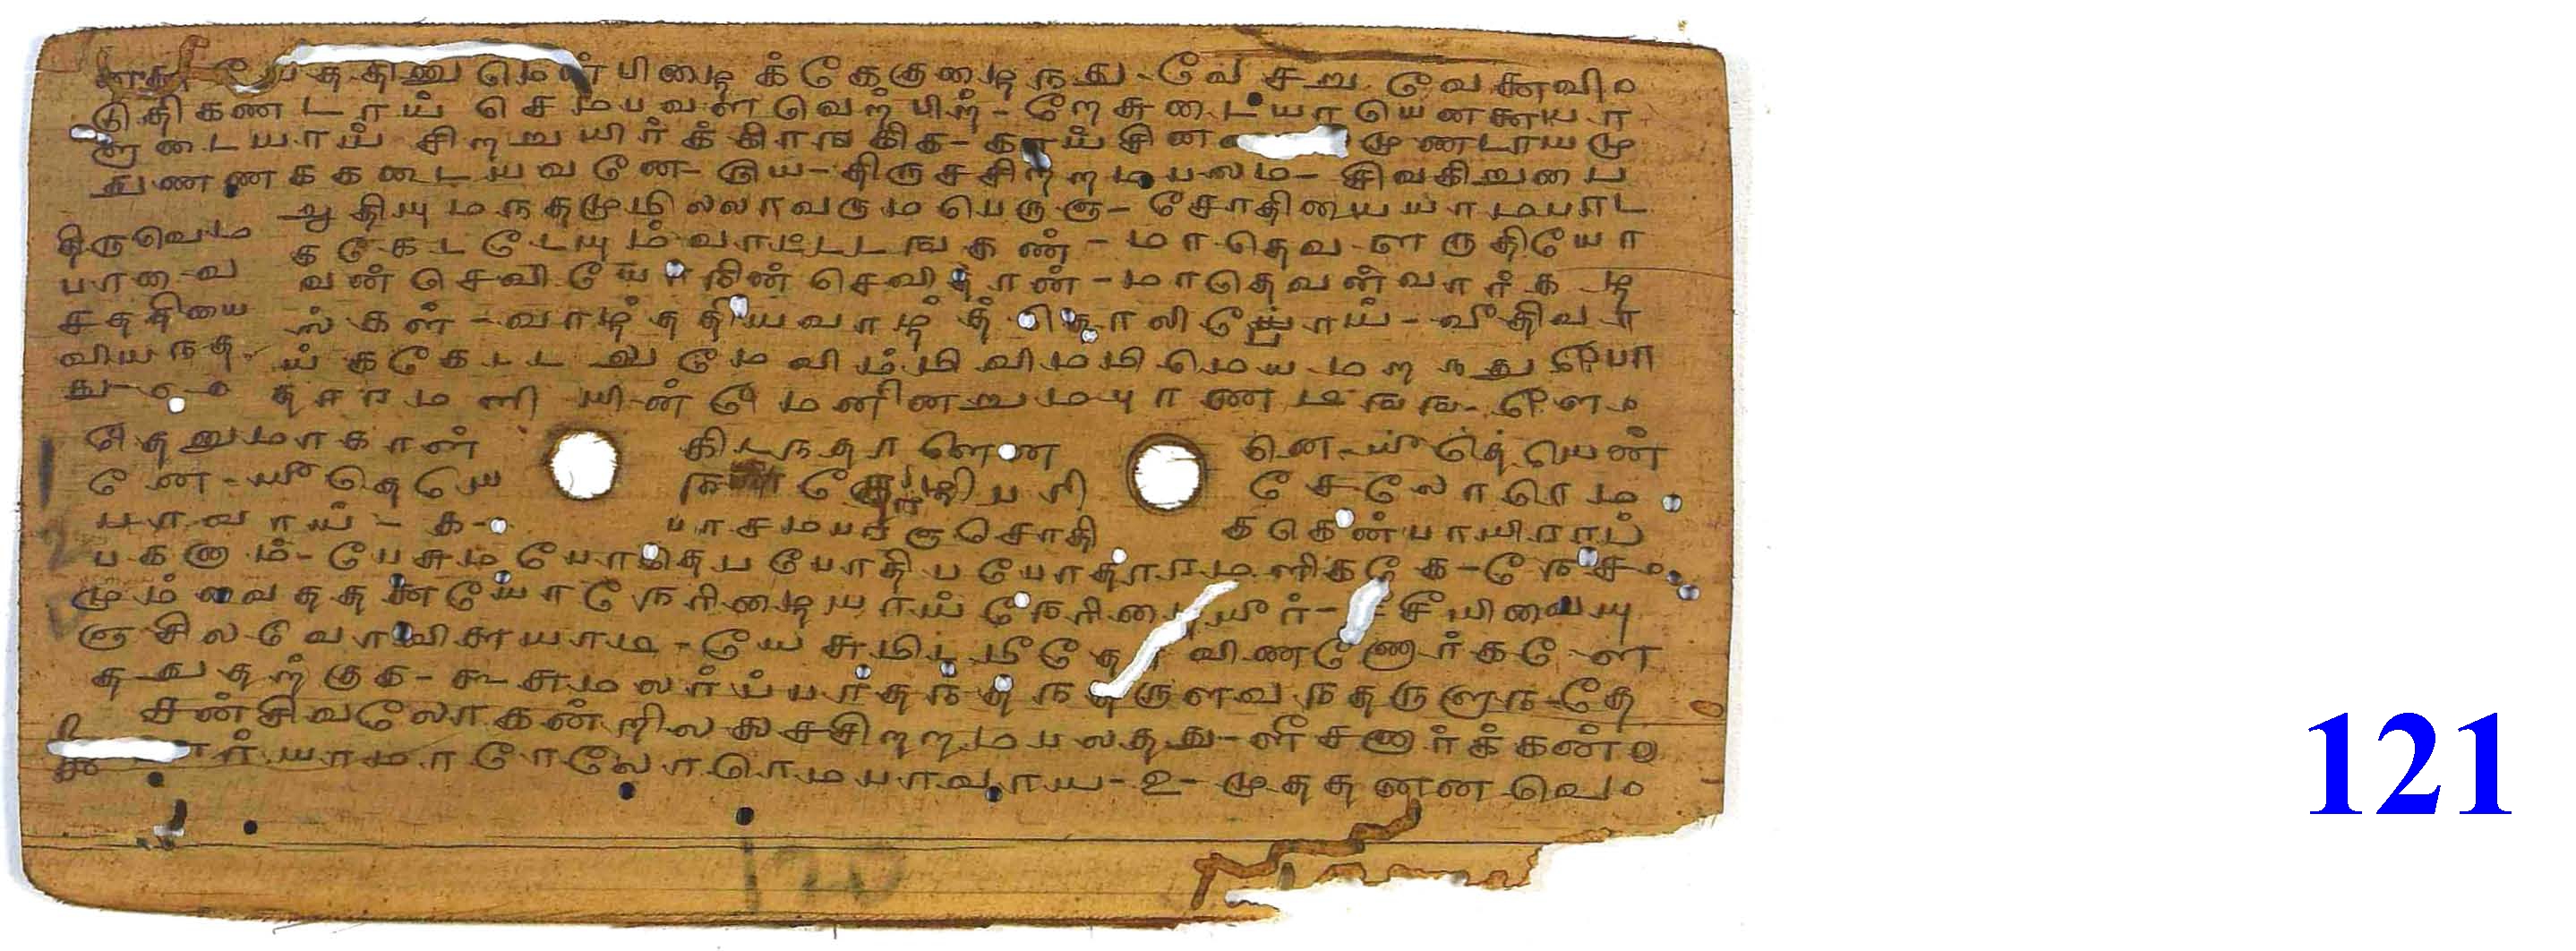 ததினுமென்பிழைக்கேகுழைநது-வேசறுவேனைவி
டுதிகணடாய் செமபவளவெற்பிற்-றேசுடையாயெனையா
ளுடையாய் சிறறுயிர்க்கிரஙகிக-காய்சின முணடாயமு
துணணககடையவனே-ஓய-திருசசிறறமபலம-சிவகிறுபை
ஆதியுமநதமுமிலலாவருமபெருஞ-சோதியையாமபாட
திருவெம ககேடடேயும்வாடடடஙகண்-மாதெவளருதியோ
பாவை-வ வன்செவியோநின்செவிதான்-மாதெவன்வார்கழ
சததியை ல்கள்-வாழ்ததியவாழ்த்தொலிபோய்-வீதிவா
வியநத ய்ககேடடலுமேவிம்மிவிமமிமெயமறநதுபோ
து தாரமளியின்மேனினறுமபுரணடிஙங-னே
தெனுமாகாள் கிடநதாளென னெ-யீதெயென்
னே-யீதெயே தோழிபரி சேலோரெம
பாவாய்-க- பாசமபரஞசொதி ககென்பாயிராப்
பகலும்-பேசுமபோதெபபோதிபபோதாரமளிககே-நேச
மும்வைததனையோநேரிழையாய்நேரிழையீர்-சீயிவையு
ஞசிலவோவிளையாடி-யேசுமிடமீதோவிணணோர்களே
ததுதற்குக-கூசுமலர்ப்பாதநதநதருளவநதருளுந-தே
சன்சிவலோகன்றிலலைசசிறறமபலதது-ளீசனார்க்கன்
ர்யாமாரேலோரெமபாவாய-உ-முததனனவெ
121